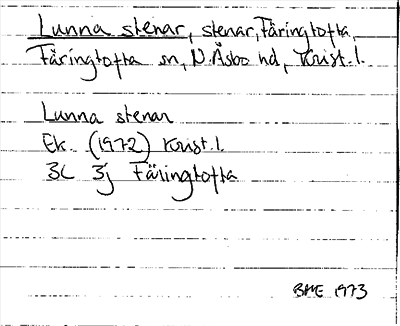 Lunna stenar, stenar, Färingtofta,
Färingtofta sn, N. Åsbo hd, Krist. l.
Lunna stenar
Ek. (1972) Krist. l.
3C 3j Färingtofta
BME 1973